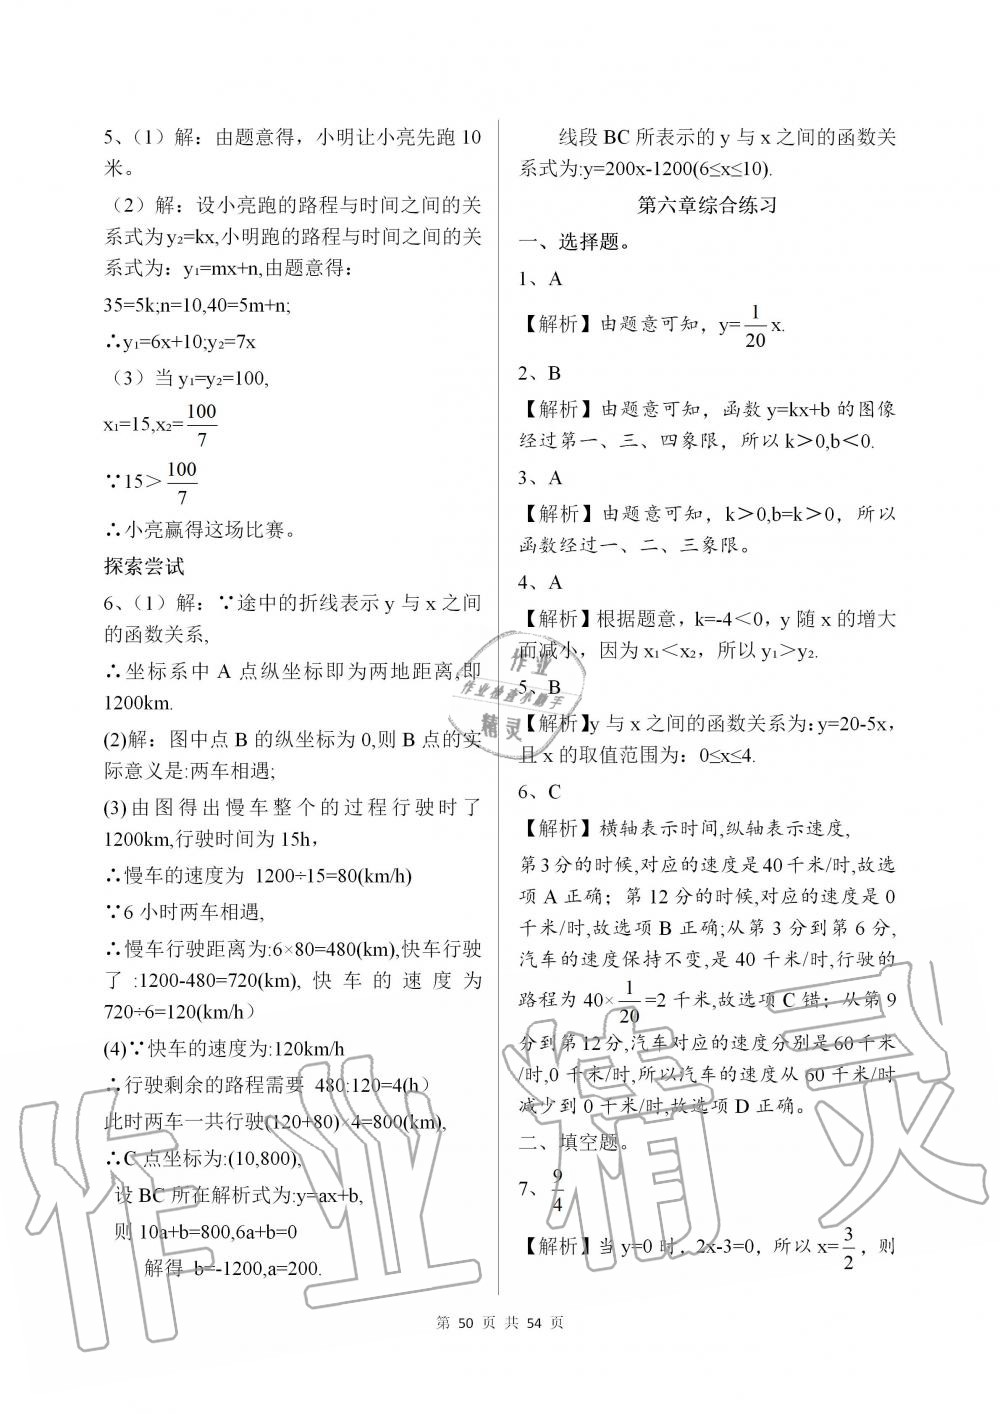 5、（1）解：由题意得，小明让小亮先跑 10
米。
（2）解：设小亮跑的路程与时间之间的关
系式为 y₂=kx,小明跑的路程与时间之间的关
系式为：y₁=mx+n,由题意得：
35=5k;n=10,40=5m+n;
∴y₁=6x+10;y₂=7x
（3）当 y₁=y₂=100,
x₁=15,x₂=100/7
∵15＞100/7
∴小亮赢得这场比赛。
探索尝试
6、（1）解：∵途中的折线表示 y 与 x 之间
的函数关系,
∴坐标系中 A 点纵坐标即为两地距离,即
1200km.
(2)解：图中点 B 的纵坐标为 0,则 B 点的实
际意义是:两车相遇;
(3)由图得出慢车整个的过程行驶时了
1200km,行驶时间为 15h，
∴慢车的速度为 1200÷15=80(km/h)
∵6 小时两车相遇,
∴慢车行驶距离为:6×80=480(km),快车行驶
了:1200-480=720(km),快车的速度为
720÷6=120(km/h）
(4)∵快车的速度为:120km/h
∴行驶剩余的路程需要 480:120=4(h）
此时两车一共行驶(120+80)×4=800(km),
∴C 点坐标为:(10,800),
设 BC 所在解析式为:y=ax+b,
则 10a+b=800,6a+b=0
解得 b=-1200,a=200.
线段 BC 所表示的 y 与 x 之间的函数关
系式为:y=200x-1200(6≤x≤10).
第六章综合练习
一、选择题。
1、A
【解析】由题意可知，y=1/20 x.
2、B
【解析】由题意可知，函数 y=kx+b 的图像
经过第一、三、四象限，所以 k＞0,b＜0.
3、A
【解析】由题意可知，k＞0,b=k＞0，所以
函数经过一、二、三象限。
4、A
【解析】根据题意，k=-4＜0，y 随 x 的增大
而减小，因为 x₁＜x₂，所以 y₁＞y₂.
5、B
【解析】y 与 x 之间的函数关系为：y=20-5x，
且 x 的取值范围为：0≤x≤4.
6、C
【解析】横轴表示时间,纵轴表示速度,
第 3 分的时候,对应的速度是 40 千米/时,故选
项 A 正确；第 12 分的时候,对应的速度是 0
千米/时,故选项 B 正确;从第 3 分到第 6 分,
汽车的速度保持不变,是 40 千米/时,行驶的
路程为 40×1/20=2 千米,故选项 C 错；从第 9
分到第 12 分,汽车对应的速度分别是 60 千米
/时,0 千米/时,所以汽车的速度从 60 千米/时
减少到 0 千米/时,故选项 D 正确。
二、填空题。
7、9/4
【解析】当 y=0 时，2x-3=0，所以 x=3/2，则
第 50 页 共 54 页
作业
作业检查小助手
精灵
作业精灵